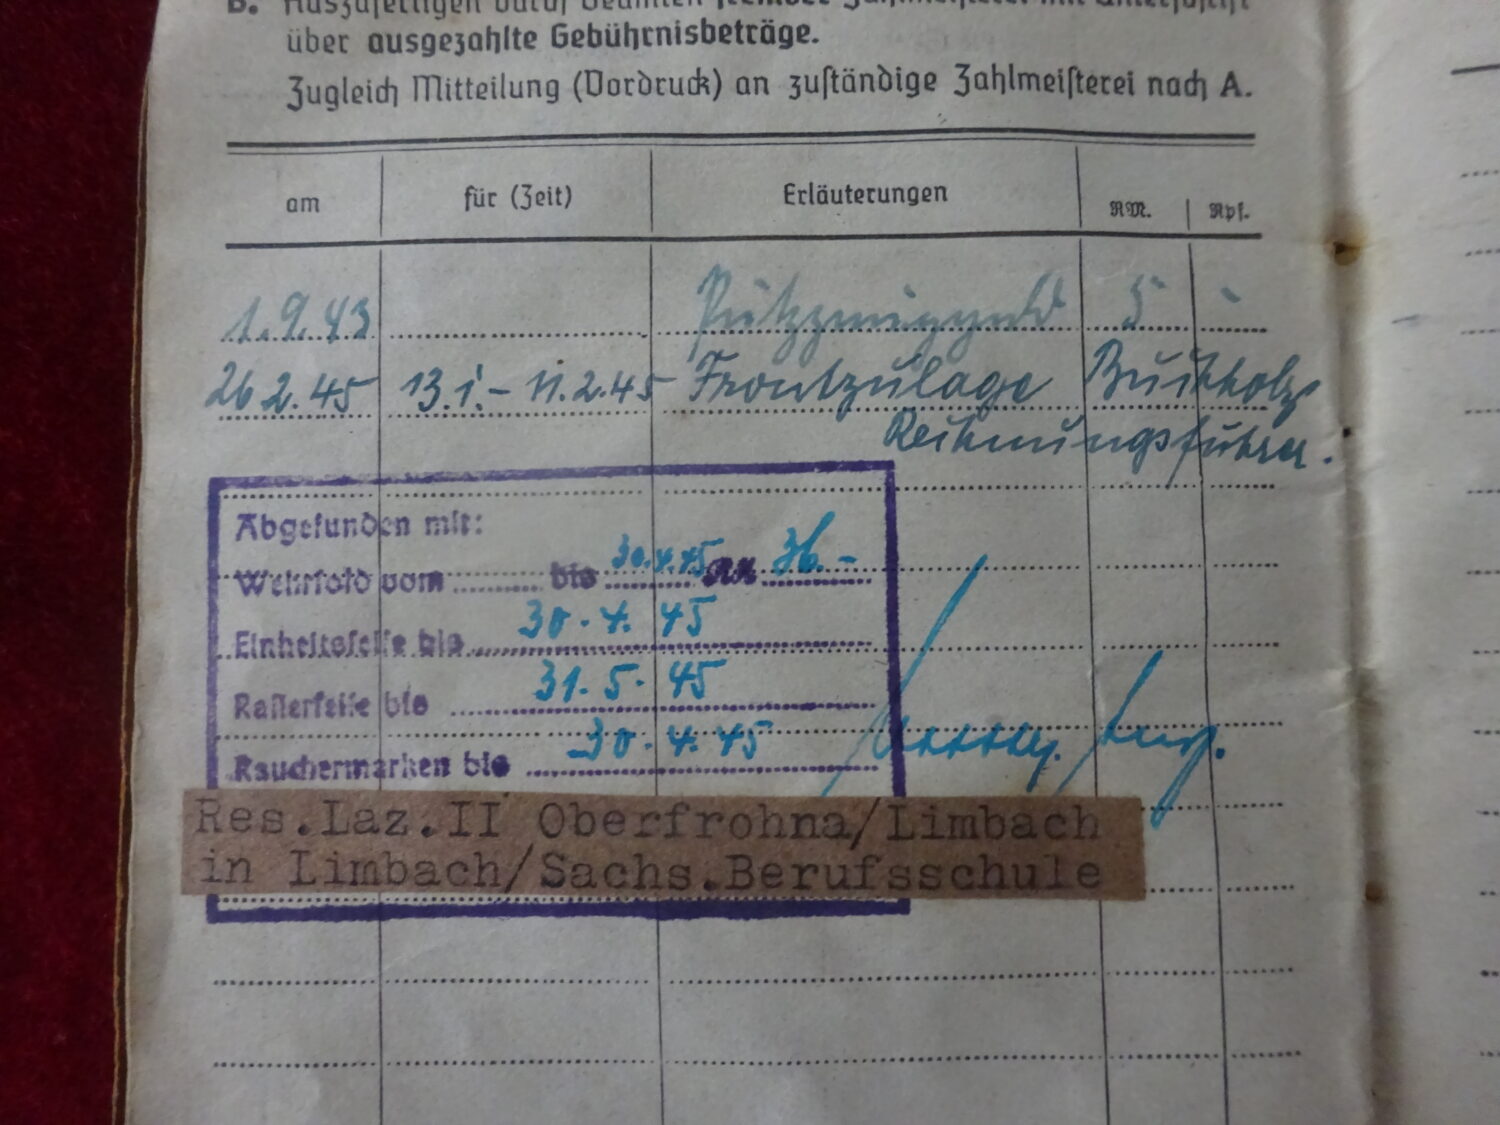 B. Auszufertigen durch Beamten fremder Zahlmeisterei mit Unterschrift
über ausgezahlte Gebührnisbeträge.
Zugleich Mitteilung (Vordruck) an zuständige Zahlmeisterei nach A.
am für (Zeit) Erläuterungen RM. Rpf.
1.9.43 Putzzeuggeld 5 -
26.2.45 13.1.-11.2.45 Frontzulage Buchholz
Rechnungsführer.
Abgefunden mit:
Wehrsold vom bis 30.4.45 RM 36.-
Einheitsseife bis 30.4.45
Rasierseife bis 31.5.45
Rauchermarken bis 30.4.45
Res.Laz.II Oberfrohna/Limbach
in Limbach/Sachs.Berufsschule